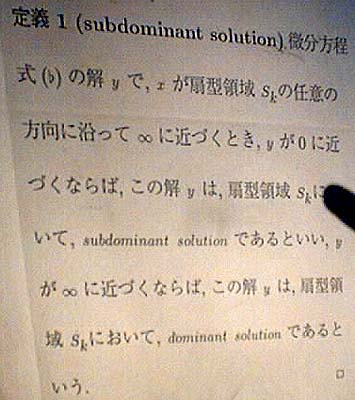 定義 1 (subdominant solution) 微分方程
式 (♭) の解 y で, x が扇型領域 Skの任意の
方向に沿って ∞ に近づくとき, y が 0 に近
づくならば, この解 y は, 扇型領域 Skに
いて, subdominant solution であるといい, y
が ∞ に近づくならば, この解 y は, 扇型領
域 Skにおいて, dominant solution であると
いう.
□